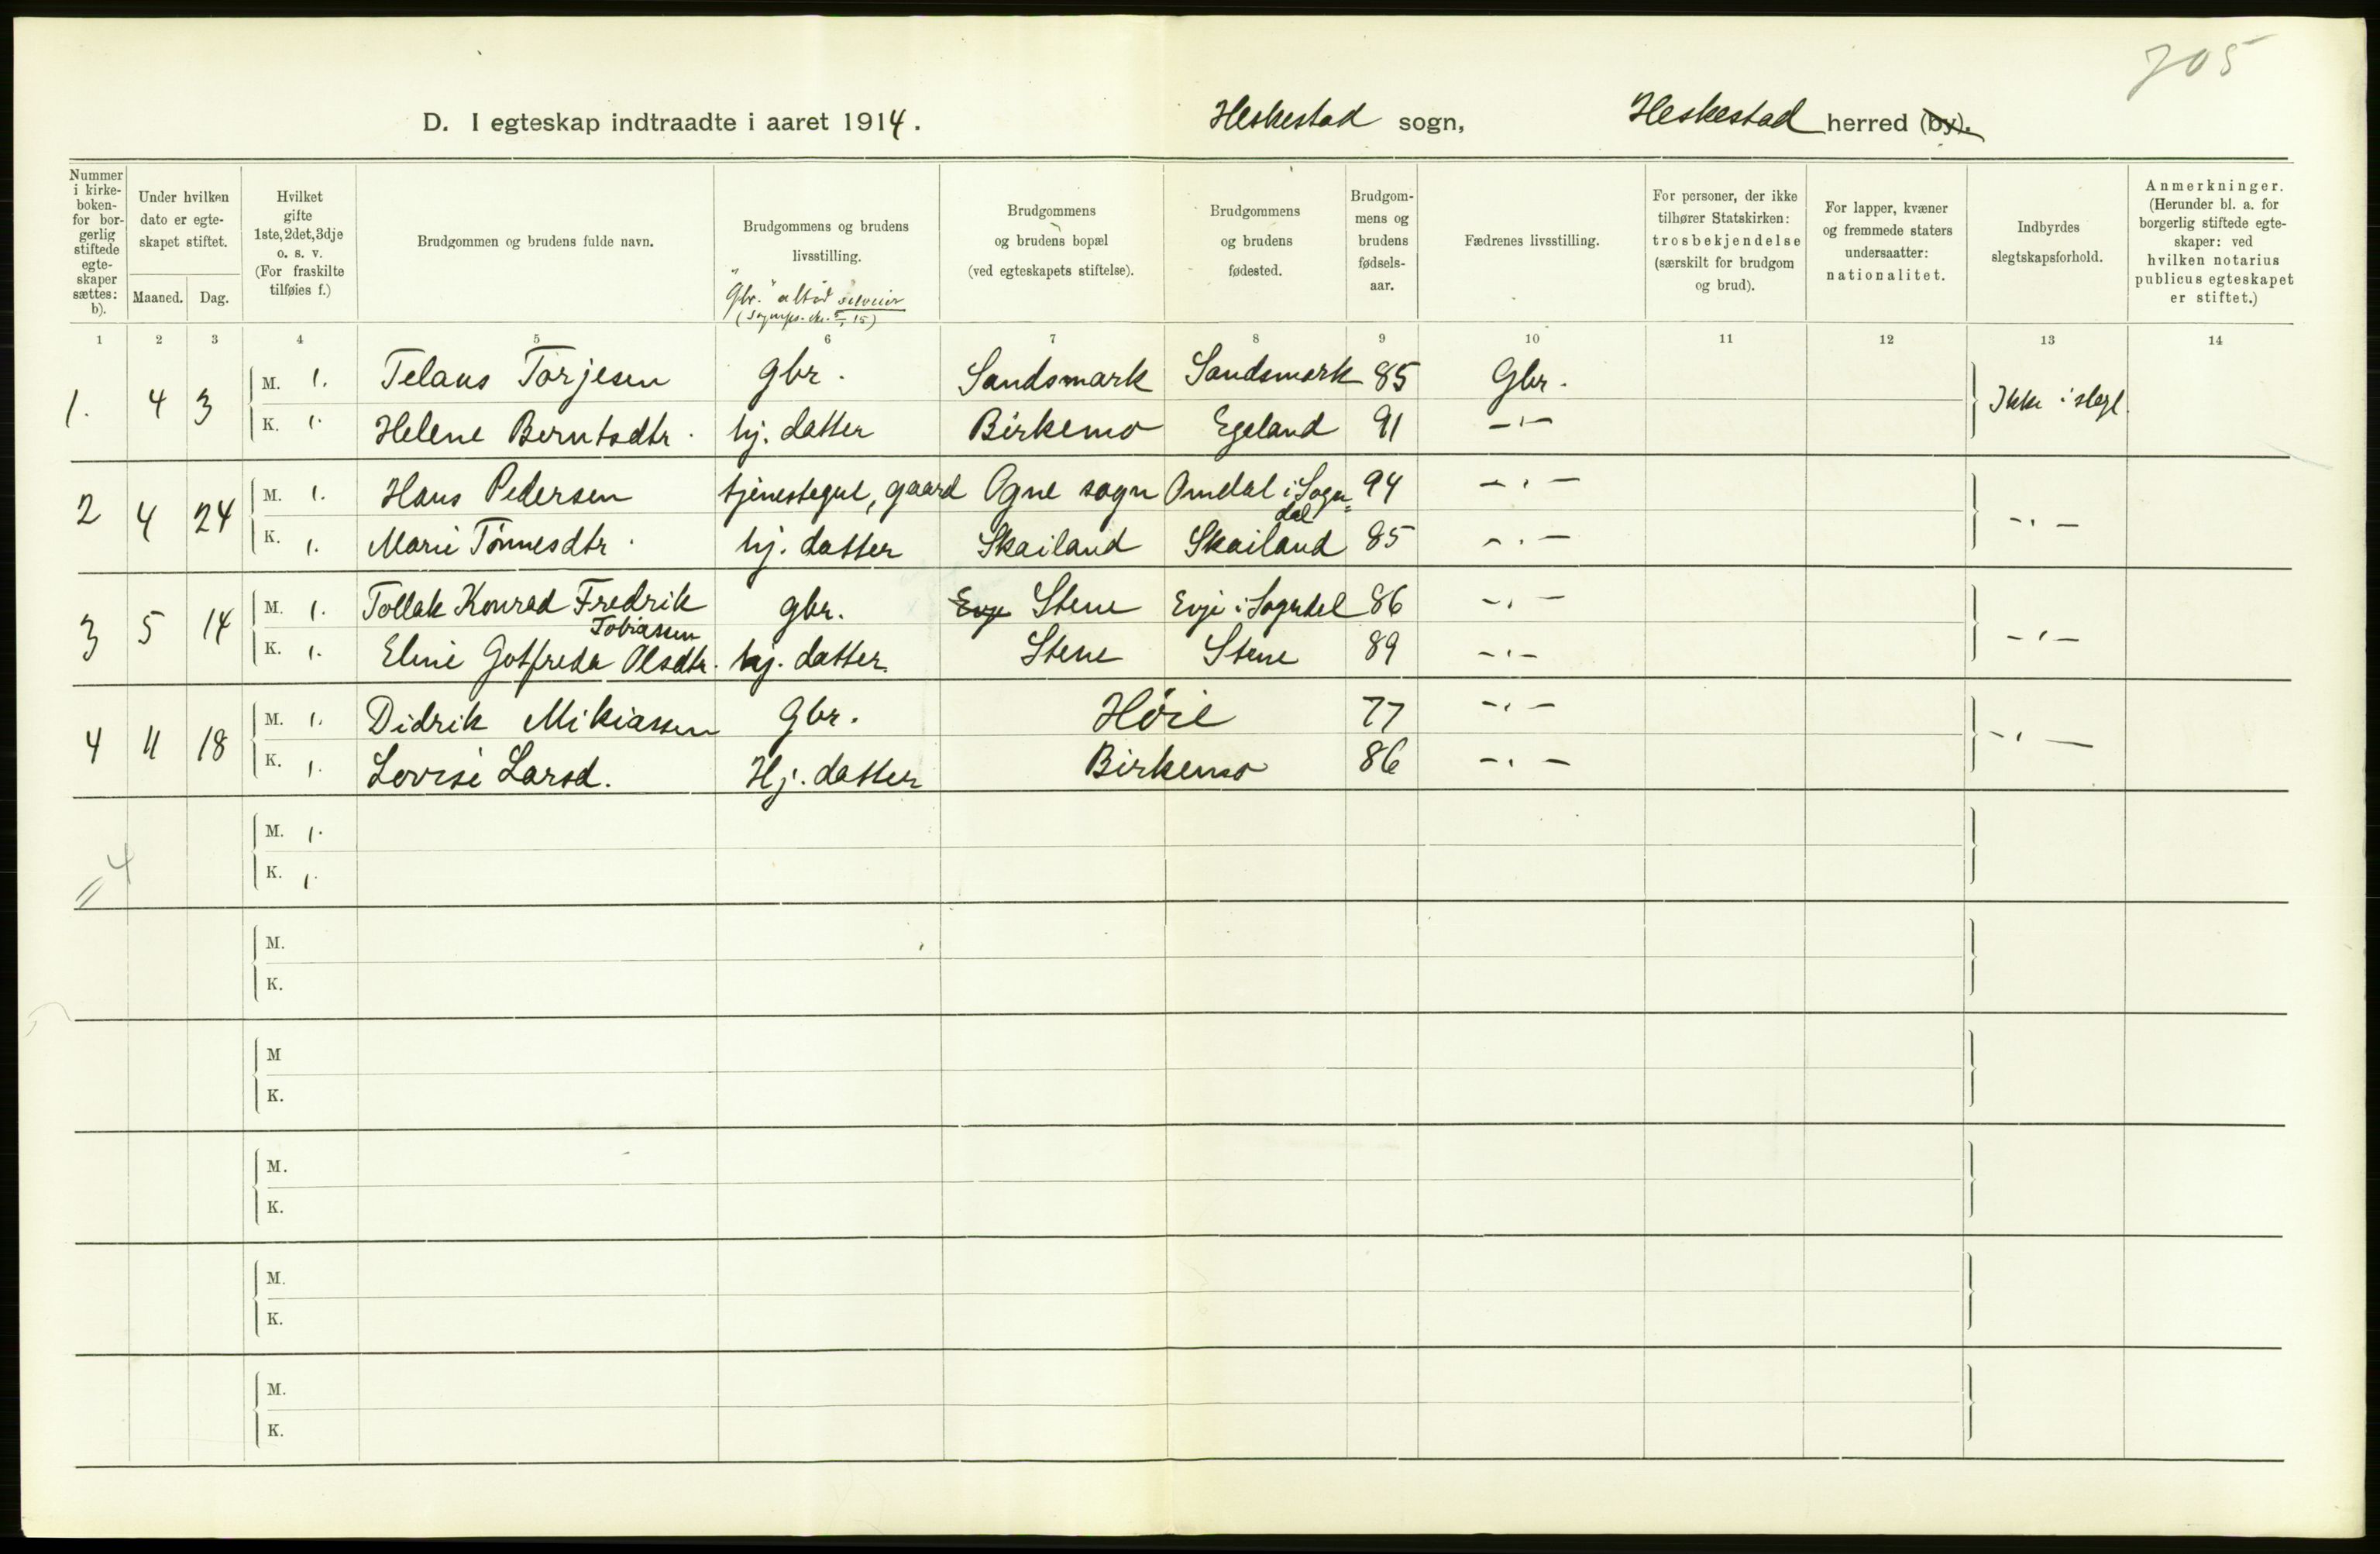 705
D. I egteskap indtraadte i aaret 1914. Heskestad sogn, Heskestad herred (by).
Nummer i kirkeboken- for borgerlig stiftede egteskaper sættes: b).
Under hvilken dato er egteskapet stiftet.
Maaned. Dag.
Hvilket gifte 1ste, 2det, 3dje o. s. v. (For fraskilte tilføies f.)
Brudgommen og brudens fulde navn.
Brudgommens og brudens livsstilling.
"Gbr." altid selveier
Brudgommens og brudens bopæl (ved egteskapets stiftelse).
Brudgommens og brudens fødested.
Brudgommens og brudens fødselsaar.
Fædrenes livsstilling.
For personer, der ikke tilhører Statskirken: trosbekjendelse (særskilt for brudgom og brud).
For lapper, kvæner og fremmede staters undersaatter: nationalitet.
Indbyrdes slegtskapsforhold.
Anmerkninger. (Herunder bl. a. for borgerlig stiftede egteskaper: ved hvilken notarius publicus egteskapet er stiftet.)
1 2 3 4 5 6 7 8 9 10 11 12 13 14
1. 4 3 M. 1. Telaus Torjesen gbr. Sandsmark Sandsmark 85 Gbr. Ikke i slegt
K. 1. Helene Berntsdtr. hj. datter Birkemo Egeland 91 -"-
2 4 24 M. 1. Hans Pedersen tjenestegut, gaard Ogne sogn Omdal i Sogndal 94 -"- -"-
K. 1. Marie Tønnesdtr. hj. datter Skailand Skailand 85 -"-
3 5 14 M. 1. Tollak Konrad Fredrik Tobiassen gbr. Evje Stene Evje i Sogndal 86 -"- -"-
K. 1. Eline Gotfreda Olsdtr. hj. datter Stene Stene 89 -"-
4 11 18 M. 1. Didrik Mikiassen Gbr. Høie 77 -"- -"-
K. 1. Lovise Larsd. Hj. datter Birkemo 86 -"-
M. 1.
K. 1.
4
M.
K.
M
K.
M.
K.
M.
K.
M.
K.